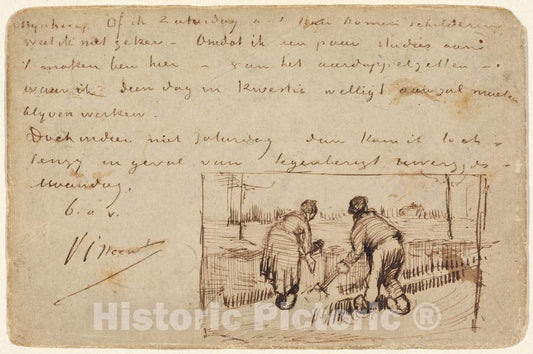 Mynheer, Of ik Zaturdag a.s. kan komen schilderen
weet ik niet zeker – Omdat ik een paar studies aan
't maken ben hier – van het aardappelzetten –
waar ik dien dag in kwestie wellicht aan zal moeten
blyven werken.
Doch indien niet Zaturdag dan kom ik toch –
tenzy in geval van tegenberigt Uwerzyds –
Maandag.
b. a. v.
Vincent
Historic Pictoric ®